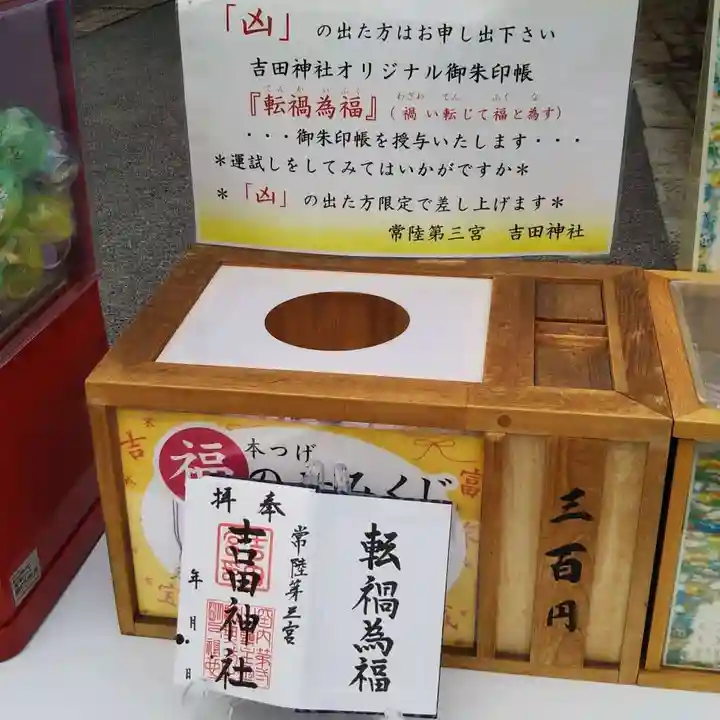 「凶」の出た方はお申し出下さい
吉田神社オリジナル御朱印帳
てん か い ふく
わざわ てん ふく な
『転禍為福』(禍い転じて福と為す)
・・・御朱印帳を授与いたします・・・
＊運試しをしてみてはいかがですか＊
＊「凶」の出た方限定で差し上げます＊
常陸第三宮 吉田神社
吉
福
本つげ
みくじ
富
宝
三百円
奉拝
常陸第三宮
吉田神社
年 月 日
転禍為福